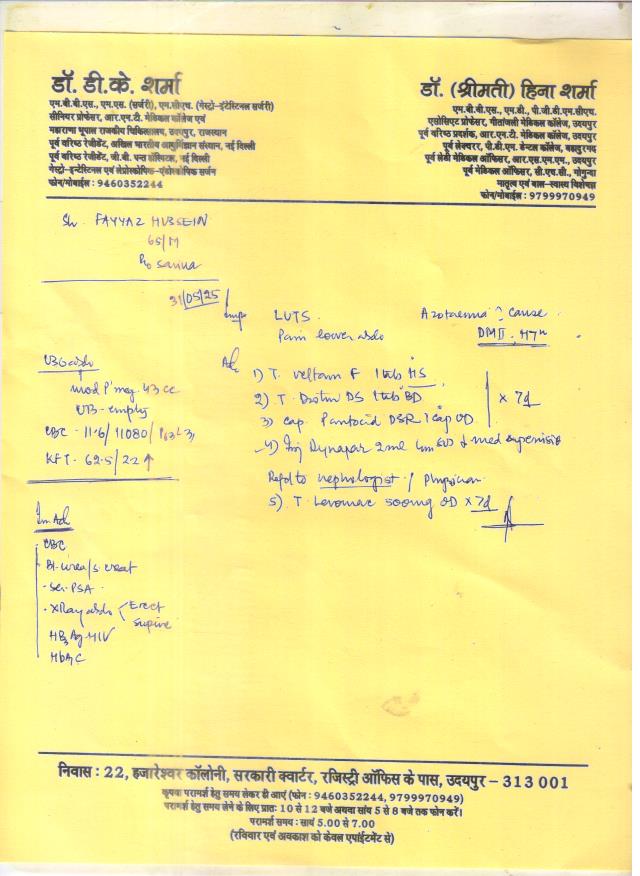 डॉ. डी.के. शर्मा
एम.बी.बी.एस., एम.एस. (सर्जरी), एम.सीएच. (गेस्ट्रो-इंटेस्टिनल सर्जरी)
सीनियर प्रोफेसर, आर.एन.टी. मेडिकल कॉलेज एवं
महाराणा भूपाल राजकीय चिकित्सालय, उदयपुर, राजस्थान
पूर्व वरिष्ठ रेजीडेंट, अखिल भारतीय आयुर्विज्ञान संस्थान, नई दिल्ली
पूर्व वरिष्ठ रेजीडेंट, जी.बी. पन्त हॉस्पिटल, नई दिल्ली
गेस्ट्रो-इन्टेस्टिनल एवं लेप्रोस्कोपिक-एंडोस्कोपिक सर्जन
फोन/मोबाईल : 9460352244
डॉ. (श्रीमती) हिना शर्मा
एम.बी.बी.एस., एम.डी., पी.जी.डी.एम.सीएच.
एसोसिएट प्रोफेसर, गीतांजली मेडिकल कॉलेज, उदयपुर
पूर्व वरिष्ठ प्रदर्शक, आर.एन.टी. मेडिकल कॉलेज, उदयपुर
पूर्व लेक्चरर, पी.डी.एम. डेन्टल कॉलेज, बहादुरगढ़
पूर्व लेडी मेडिकल ऑफिसर, आर.एस.एम.एम., उदयपुर
पूर्व मेडिकल ऑफिसर, सी.एच.सी., गोगुन्दा
मातृत्व एवं बाल-स्वास्थ्य विशेषज्ञ
फोन/मोबाईल : 9799970949
Sh. FAYYAZ HUSSEIN
65/M
31/05/25
LUTS
Pain lower abdo
Azotaemia ? cause
DM II, HTn
USG abdo
mod P'meg. 43 cc
UB- empty
CBC - 11.6/11080/
KFT - 62.5/2.2 ↑
Adv
1) T. Veltam F 1 tab HS
2) T. DS 1 tab BD
3) Cap. Pantocid DSR 1 cap OD
x 7d
4) Inj Dynapar 2ml im
Refd to nephologist / Physician
5) T. Levomac 500mg OD x 7d
CBC
Bl. urea/s. creat
- Ser. PSA
- X Ray abdo < Erect
Supine
HBsAg HIV
HbA1C
निवास : 22, हजारेश्वर कॉलोनी, सरकारी क्वार्टर, रजिस्ट्री ऑफिस के पास, उदयपुर – 313 001
कृपया परामर्श हेतु समय लेकर ही आएं (फोन : 9460352244, 9799970949)
परामर्श हेतु समय लेने के लिए प्रातः 10 से 12 बजे अथवा सांय 5 से 8 बजे तक फोन करें।
परामर्श समय : सायं 5.00 से 7.00
(रविवार एवं अवकाश को केवल एपॉईंटमेंट से)